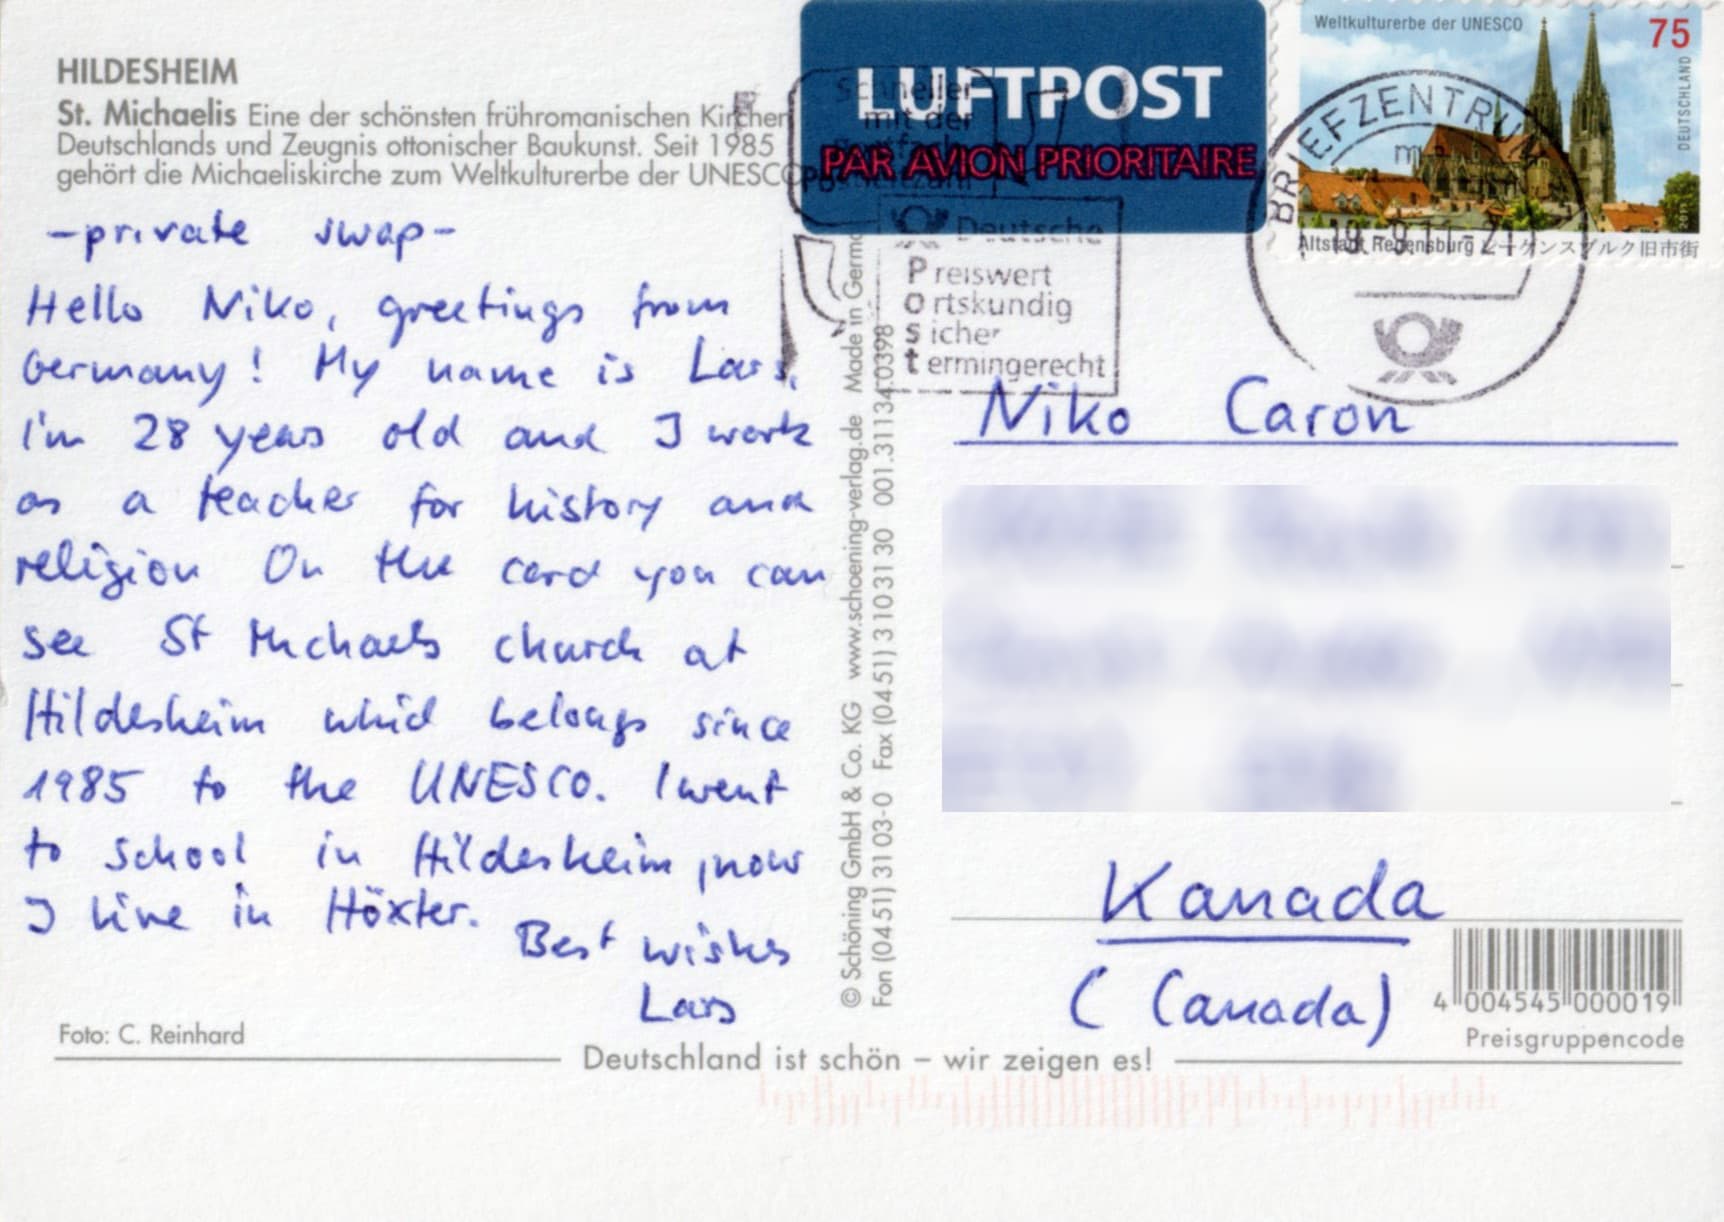 HILDESHEIM
St. Michaelis Eine der schönsten frühromanischen Kirchen
Deutschlands und Zeugnis ottonischer Baukunst. Seit 1985
gehört die Michaeliskirche zum Weltkulturerbe der UNESCO
-private swap-
Hello Niko, greetings from
Germany! My name is Lars,
I'm 28 years old and I work
as a teacher for history and
religion On the card you can
see St Michaels church at
Hildesheim which belongs since
1985 to the UNESCO. I went
to school in Hildesheim, now
I live in Höxter.
Best wishes
Lars
Foto: C. Reinhard
Deutschland ist schön – wir zeigen es!
© Schöning GmbH & Co. KG www.schoening-verlag.de Made in Germ
Fon (0451) 3103-0 Fax (0451) 3103130 001.31134.0398
LUFTPOST
PAR AVION PRIORITAIRE
Schneller
mit der
Deutsche
Preiswert
Ortskundig
Sicher
termingerecht
Weltkulturerbe der UNESCO
75
DEUTSCHLAND
2011
Altstadt Regensburg レーゲンスブルク旧市街
BRIEFZENTRUM
19.-9.11-21
Niko Caron
Kanada
(Canada)
4 004545 000019
Preisgruppencode